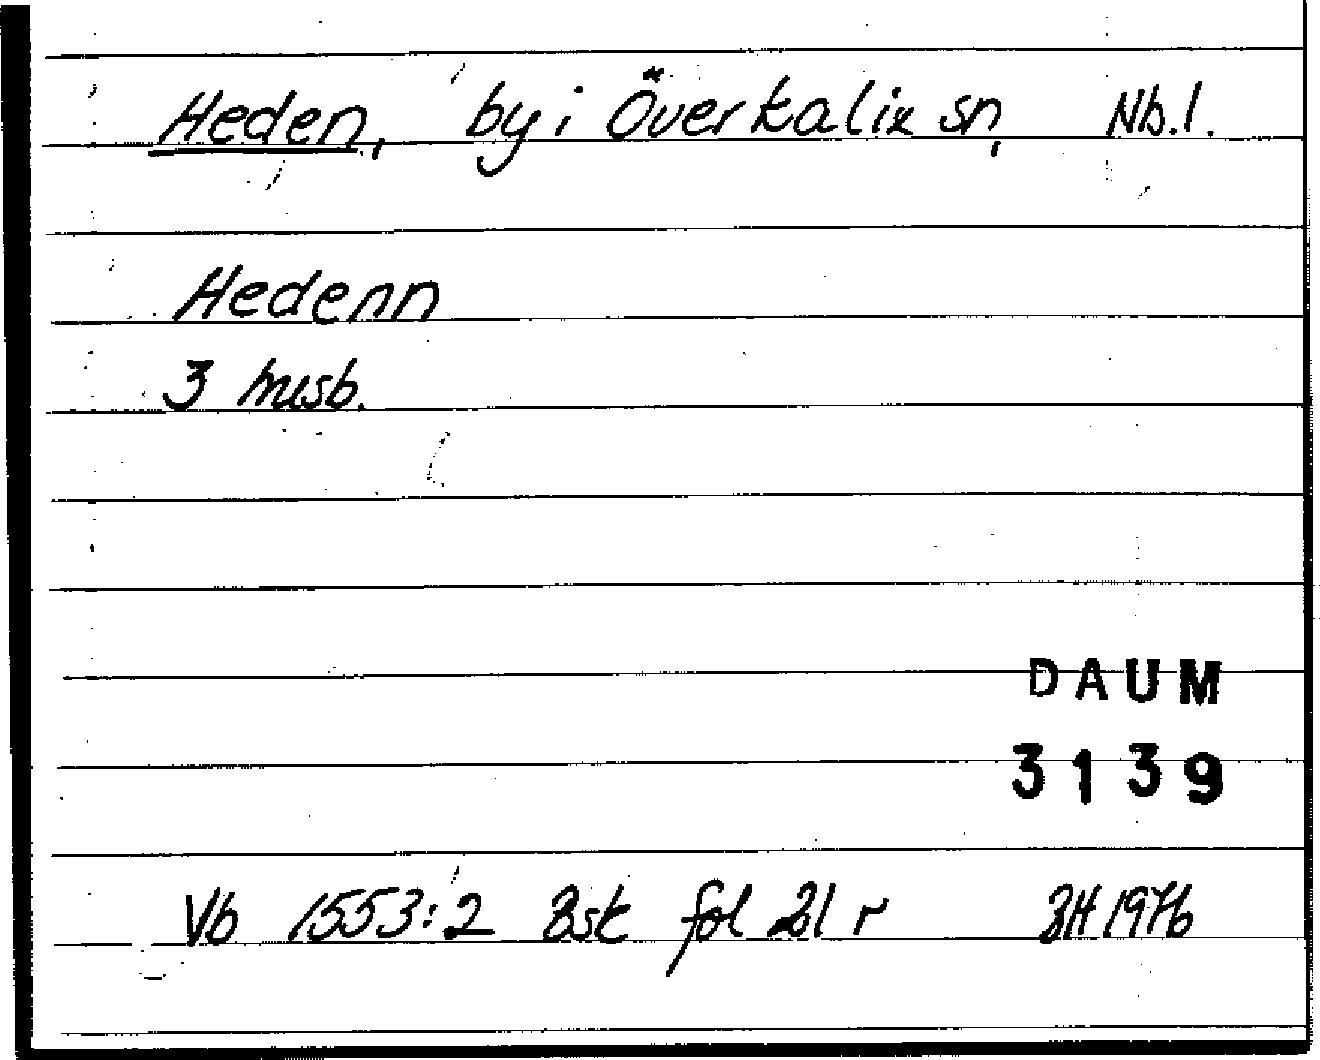 Heden, by i Överkalix sn, Nb.l.
Hedenn
3 husb.
DAUM
3139
Vb 1553:2 Bsk fol 21 r BH 1976